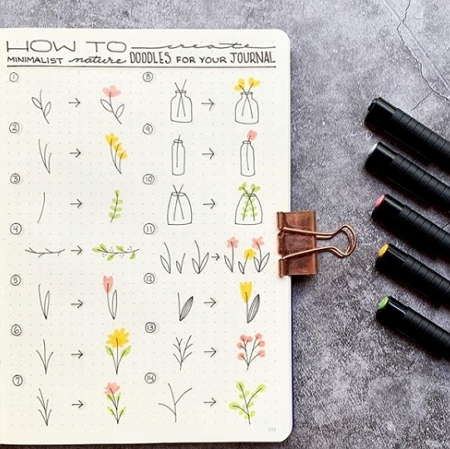 HOW TO create
MINIMALIST nature DOODLES FOR YOUR JOURNAL
1
2
3
4
5
6
7
8
9
10
11
12
13
14